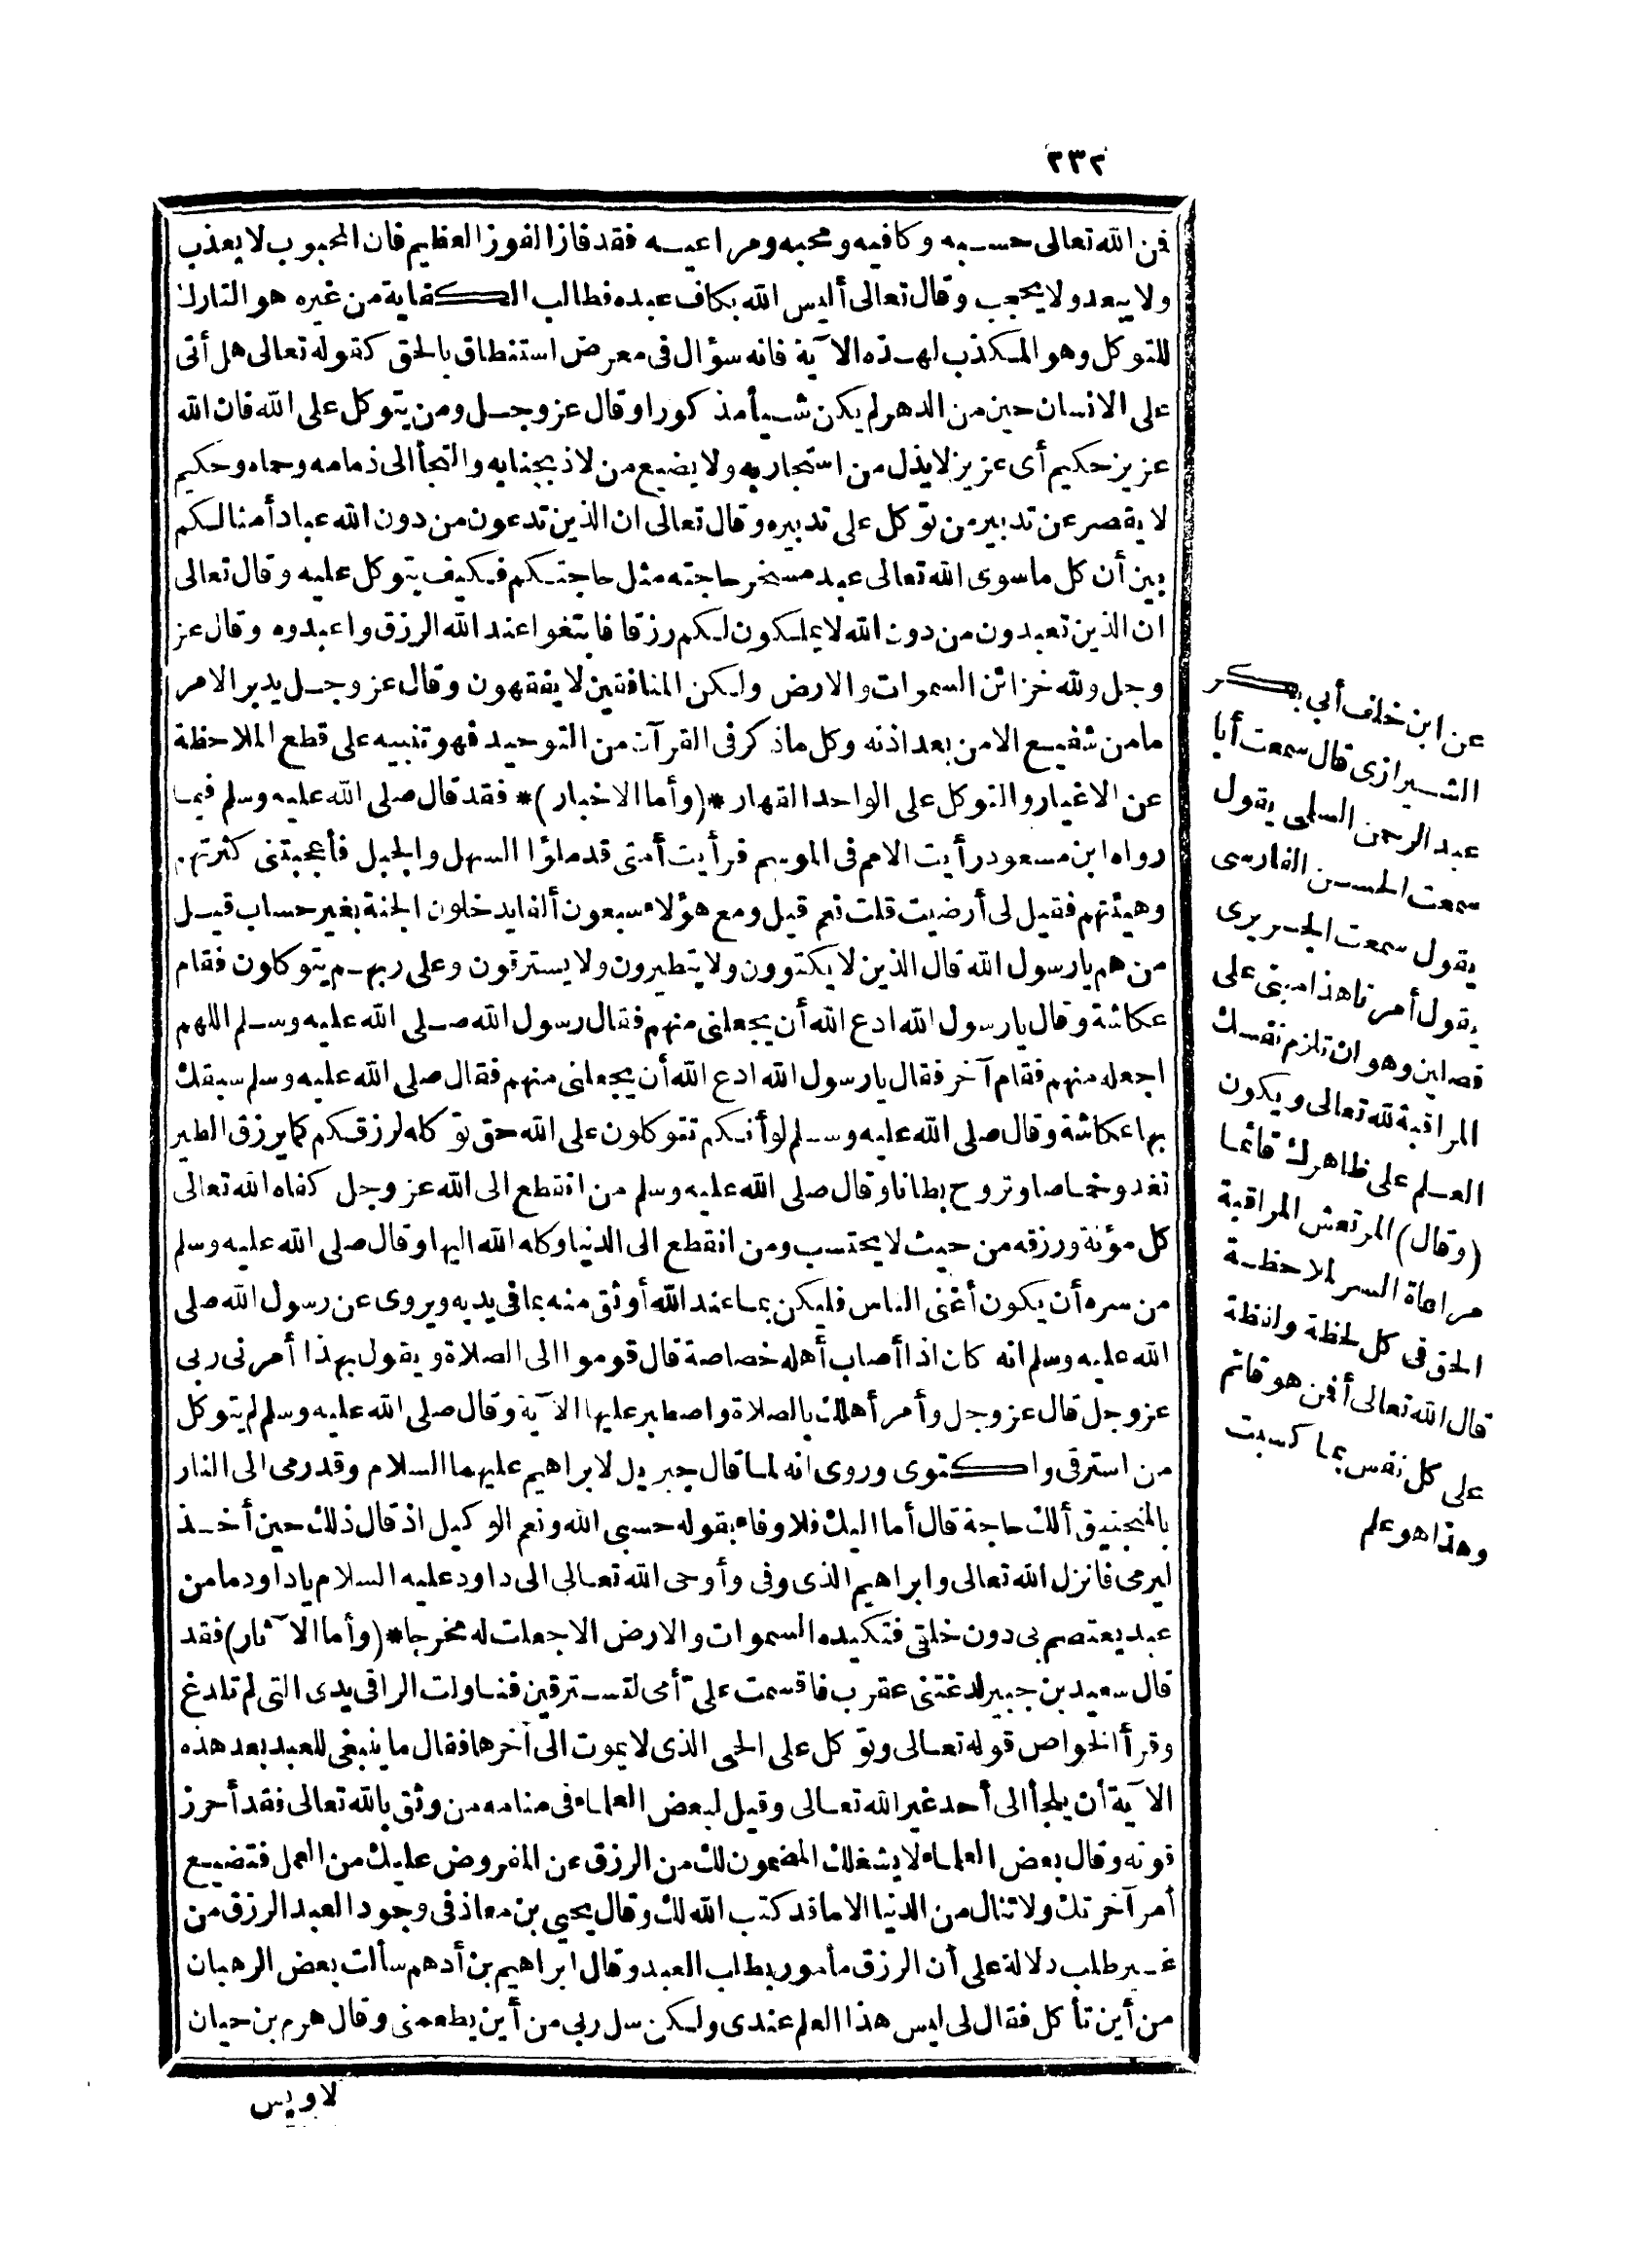 ٢٣٢
فمن الله تعالى حسبه وكافيه ومحبه ومراعيه فقد فاز الفوز العظيم فان المحبوب لا يعذب
ولا يبعد ولا يحجب وقال تعالى أليس الله بكاف عبده فطالب الكفاية من غيره هو التارك
للتوكل وهو المكذب لهذه الآية فانه سؤال فى معرض استنطاق بالحق كقوله تعالى هل أتى
على الانسان حين من الدهر لم يكن شيأ مذكورا وقال عز وجل ومن يتوكل على الله فان الله
عزيز حكيم أى عزيز لا يذل من استجار به ولا يضيع من لاذ بجنابه والتجأ الى ذمامه وحماه وحكيم
لا يقصر عن تدبير من توكل على تدبيره وقال تعالى ان الذين تدعون من دون الله عباد أمثالكم
بين أن كل ما سوى الله تعالى عبد مسخر حاجته مثل حاجتكم فكيف يتوكل عليه وقال تعالى
ان الذين تعبدون من دون الله لا يملكون لكم رزقا فابتغوا عند الله الرزق واعبدوه وقال عز
وجل ولله خزائن السموات والارض ولكن المنافقين لا يفقهون وقال عز وجل يدبر الامر
ما من شفيع الا من بعد اذنه وكل ما ذكر فى القرآن من التوحيد فهو تنبيه على قطع الملاحظة
عن الاغيار والتوكل على الواحد القهار *(وأما الاخبار)* فقد قال صلى الله عليه وسلم فيما
رواه ابن مسعود رأيت الامم فى الموسم فرأيت أمتى قد ملؤا السهل والجبل فأعجبتنى كثرتهم
وهيئتهم فقيل لى أرضيت قلت نعم قيل ومع هؤلاء سبعون ألفا يدخلون الجنة بغير حساب قيل
من هم يا رسول الله قال الذين لا يكتوون ولا يتطيرون ولا يسترقون وعلى ربهم يتوكلون فقام
عكاشة وقال يا رسول الله ادع الله أن يجعلنى منهم فقال رسول الله صلى الله عليه وسلم اللهم
اجعله منهم فقام آخر فقال يا رسول الله ادع الله أن يجعلنى منهم فقال صلى الله عليه وسلم سبقك
بها عكاشة وقال صلى الله عليه وسلم لو أنكم تتوكلون على الله حق توكله لرزقكم كما يرزق الطير
تغدو خماصا وتروح بطانا وقال صلى الله عليه وسلم من انقطع الى الله عز وجل كفاه الله تعالى
كل مؤنة ورزقه من حيث لا يحتسب ومن انقطع الى الدنيا وكله الله اليها وقال صلى الله عليه وسلم
من سره أن يكون أغنى الناس فليكن بما عند الله أوثق منه بما فى يديه ويروى عن رسول الله صلى
الله عليه وسلم انه كان اذا أصاب أهله خصاصة قال قوموا الى الصلاة ويقول بهذا أمرنى ربى
عز وجل قال عز وجل وأمر أهلك بالصلاة واصطبر عليها الآية وقال صلى الله عليه وسلم لم يتوكل
من استرقى واكتوى وروى انه لما قال جبريل لابراهيم عليهما السلام وقد رمى الى النار
بالمنجنيق ألك حاجة قال أما اليك فلا وفاء بقوله حسبى الله ونعم الوكيل اذ قال ذلك حين أخذ
ليرمى فانزل الله تعالى وابراهيم الذى وفى وأوحى الله تعالى الى داود عليه السلام يا داود ما من
عبد يعتصم بى دون خلقى فتكيده السموات والارض الا جعلت له مخرجا *(وأما الآثار) فقد
قال سعيد بن جبير لدغتنى عقرب فاقسمت على أمى لتسترقين فناولت الراقى يدى التى لم تلدغ
وقرأ الخواص قوله تعالى وتوكل على الحى الذى لا يموت الى آخرها فقال ما ينبغى للعبد بعد هذه
الآية أن يلجأ الى أحد غير الله تعالى وقيل لبعض العلماء فى منامه من وثق بالله تعالى فقد أحرز
قوته وقال بعض العلماء لا يشغلك المضمون لك من الرزق عن المفروض عليك من العمل فتضيع
أمر آخرتك ولا تنال من الدنيا الا ما قد كتب الله لك وقال يحيى بن معاذ فى وجود العبد الرزق من
غير طلب دلالة على أن الرزق مأمور بطلب العبد وقال ابراهيم بن أدهم سألت بعض الرهبان
من أين تأكل فقال لى ليس هذا العلم عندى ولكن سل ربى من أين يطعمنى وقال هرم بن حيان
لاويس
عن ابن خلف أبى بكر
الشيرازى قال سمعت أبا
عبد الرحمن السلمى يقول
سمعت الحسن الفارسى
يقول سمعت الجريرى
يقول أمرنا هذا مبنى على
فصلين وهو ان تلزم نفسك
المراقبة لله تعالى ويكون
العلم على ظاهرك قائما
(وقال) المرتعش المراقبة
مراعاة السر لملاحظة
الحق فى كل لحظة ولفظة
قال الله تعالى أفمن هو قائم
على كل نفس بما كسبت
وهذا هو علم